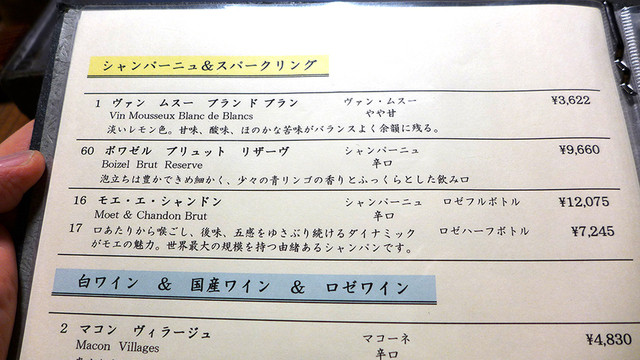 シャンパーニュ&スパークリング
1 ヴァン ムスー ブラン ド ブラン ヴァン・ムスー ¥3,622
Vin Mousseux Blanc de Blancs やや甘
淡いレモン色。甘味、酸味、ほのかな苦味がバランスよく余韻に残る。
60 ボワゼル ブリュット リザーヴ シャンパーニュ ¥9,660
Boizel Brut Reserve 辛口
泡立ちは豊かできめ細かく、少々の青リンゴの香りとふっくらとした飲み口
16 モエ・エ・シャンドン シャンパーニュ ロゼフルボトル ¥12,075
Moet & Chandon Brut 辛口
17 口あたりから喉ごし、後味、五感をゆさぶり続けるダイナミック ロゼハーフボトル ¥7,245
がモエの魅力。世界最大の規模を持つ由緒あるシャンパンです。
白ワイン & 国産ワイン & ロゼワイン
2 マコン ヴィラージュ マコーネ ¥4,830
Macon Villages 辛口